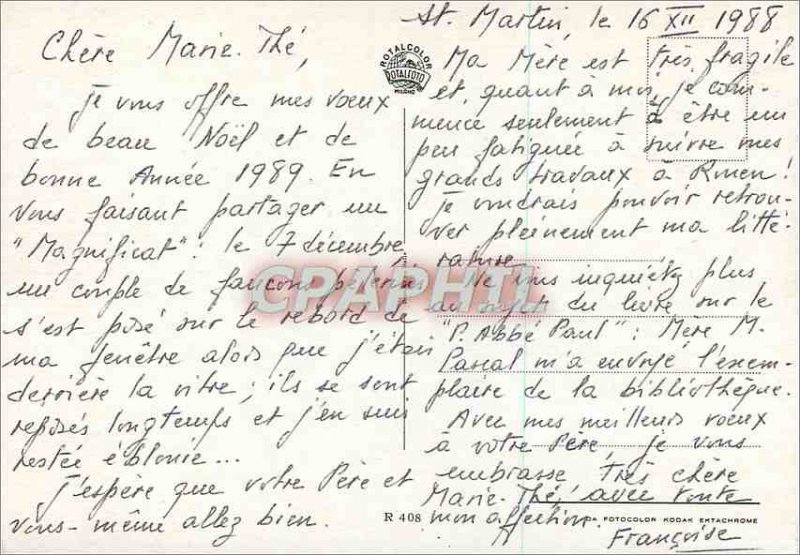 St. Martin, le 16 XII 1988
Chère Marie-Thé,
Je vous offre mes vœux
de beau Noël et de
bonne Année 1989. En
vous faisant partager un
"Magnificat" : le 7 décembre,
un couple de faucons pèlerins
s'est posé sur le rebord de
ma fenêtre alors que j'étais
derrière la vitre ; ils se sont
reposés longtemps et j'en suis
restée éblouie...
J'espère que votre Père et
vous-même allez bien.
Ma Mère est très fragile
et, quant à moi, je com-
mence seulement à être un
peu fatiguée à suivre mes
grands travaux à Rouen !
Je voudrais pouvoir retrou-
ver pleinement ma litté-
rature.
Ne vous inquiétez plus
au sujet du livre sur le
"P. Abbé Paul" : Mère M.
Pascal m'a envoyé l'exem-
plaire de la bibliothèque.
Avec mes meilleurs vœux
à votre Père, je vous
embrasse très chère
Marie-Thé, avec toute
mon affection.
Françoise
ROTALCOLOR
ROTALFOTO
MILANO
R 408
DA FOTOCOLOR KODAK EKTACHROME
CPAPHIL